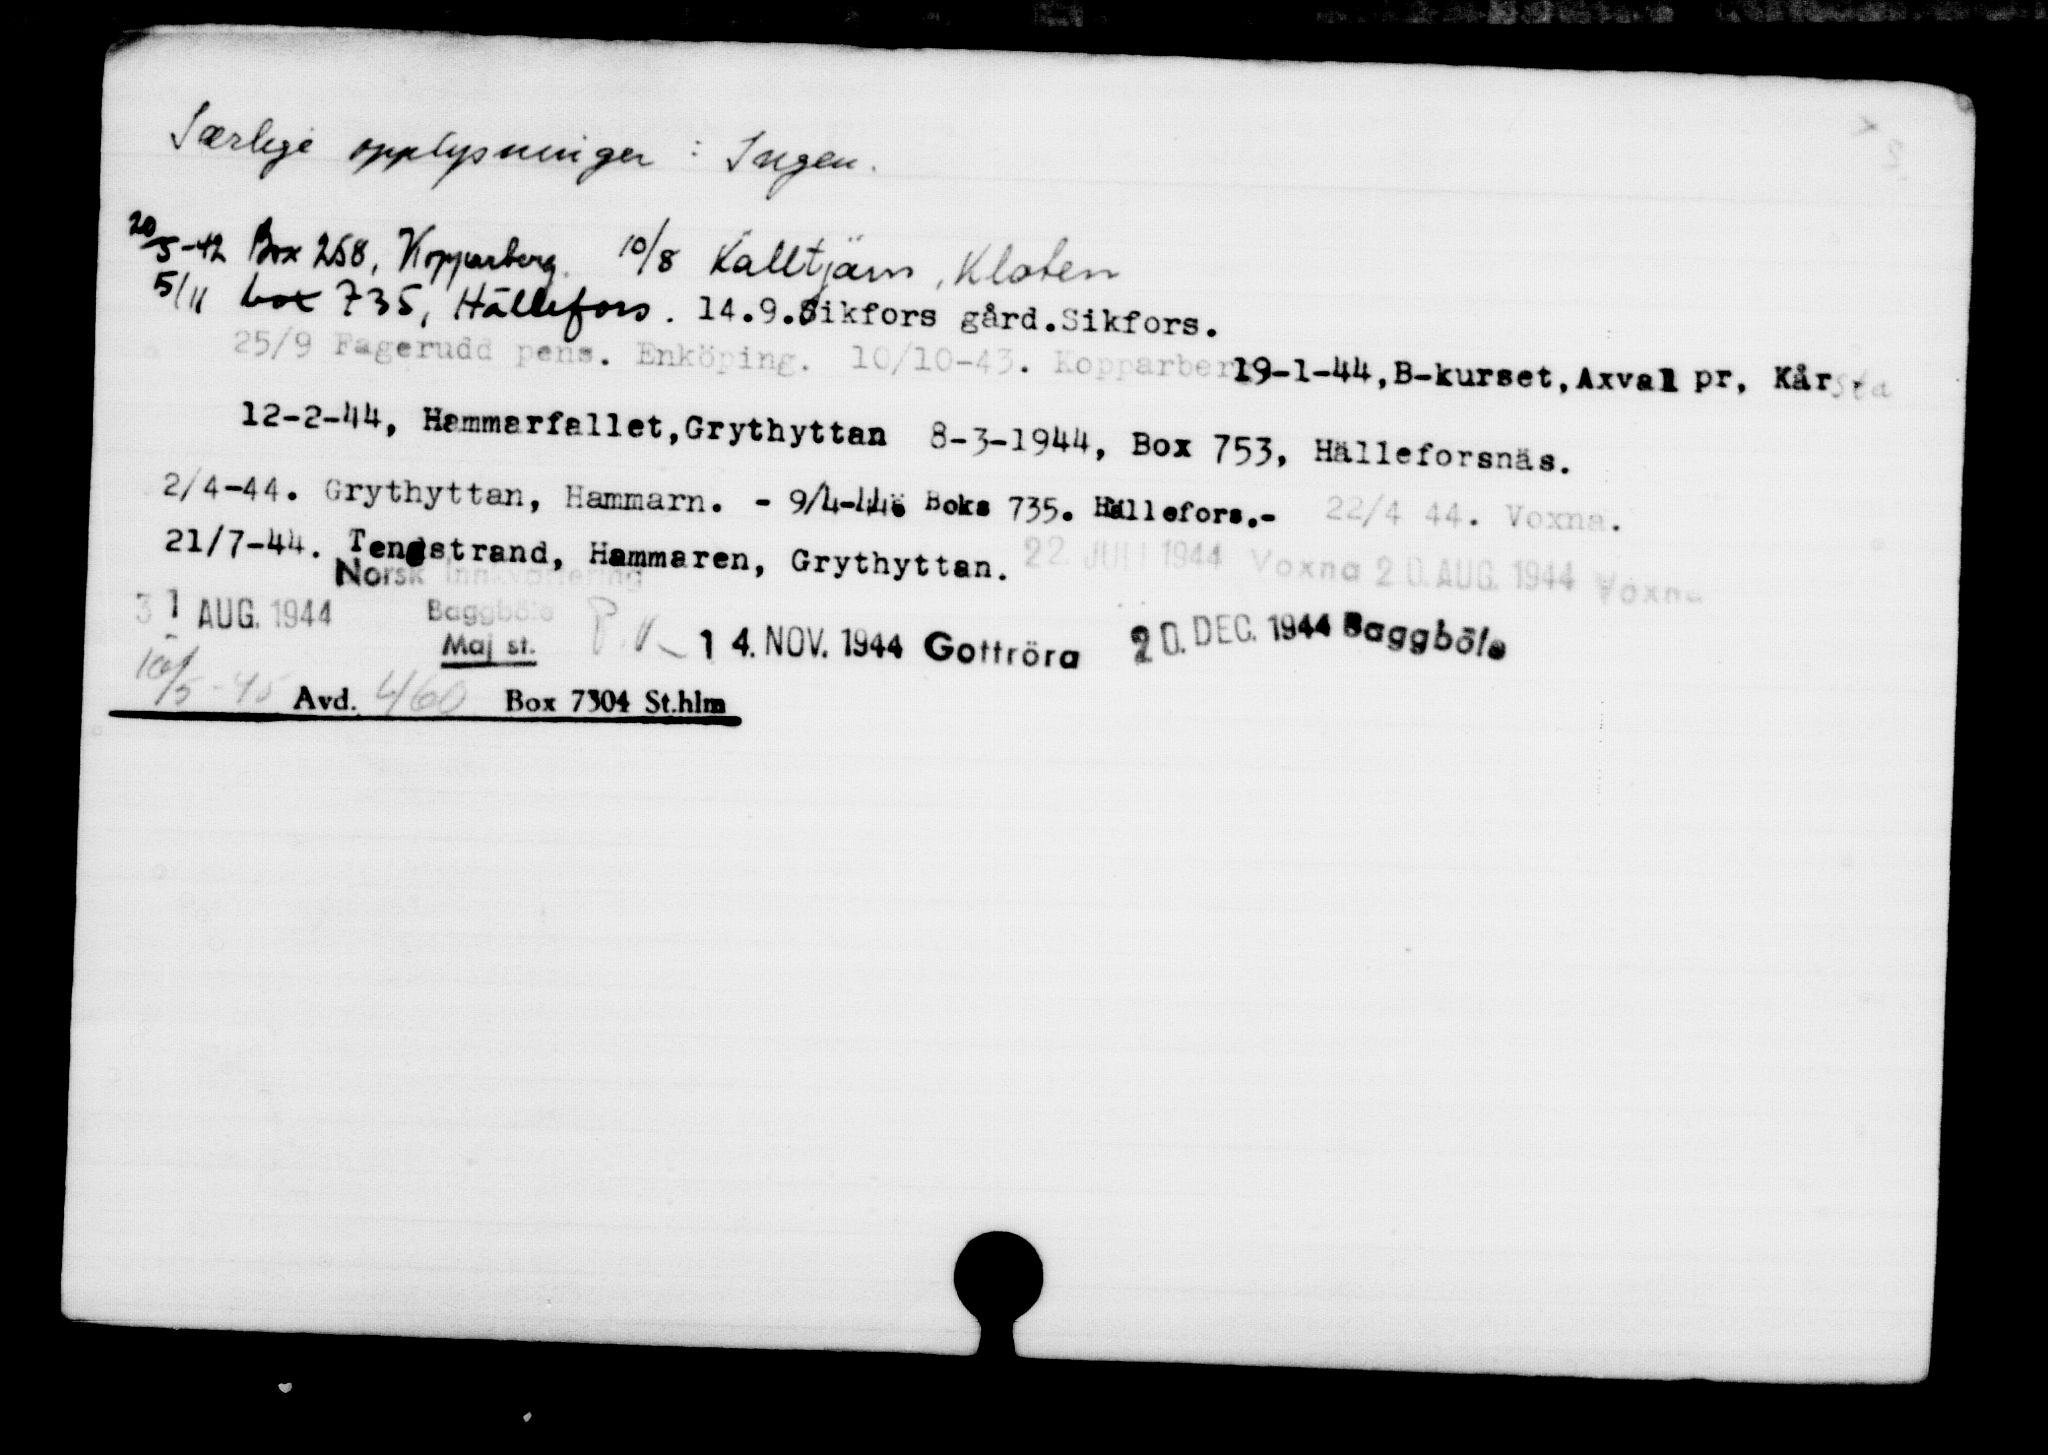 Særlige opplysninger : Ingen.
20/5-42 Box 258, Kopparberg. 10/8 Kalltjärn, Kloten
5/11 box 735, Hällefors. 14.9.Sikfors gård.Sikfors.
25/9 Fagerudd pens. Enköping. 10/10-43. Kopparber 19-1-44,B-kurset,Axval pr, Kårsta
12-2-44, Hammarfallet,Grythyttan 8-3-1944, Box 753, Hälleforsnäs.
2/4-44. Grythyttan, Hammarn. - 9/4-44. Boks 735. Hällefors.- 22/4 44. Voxna.
21/7-44. Tengstrand, Hammaren, Grythyttan. 22. JULI 1944 Voxna 20. AUG. 1944 Voxna
Norsk Innkvartering
31 AUG. 1944 Baggböle P.K. 14. NOV. 1944 Gottröra 20. DEC. 1944 Baggböle
Maj st.
10/5-45 Avd. 460 Box 7304 St.hlm